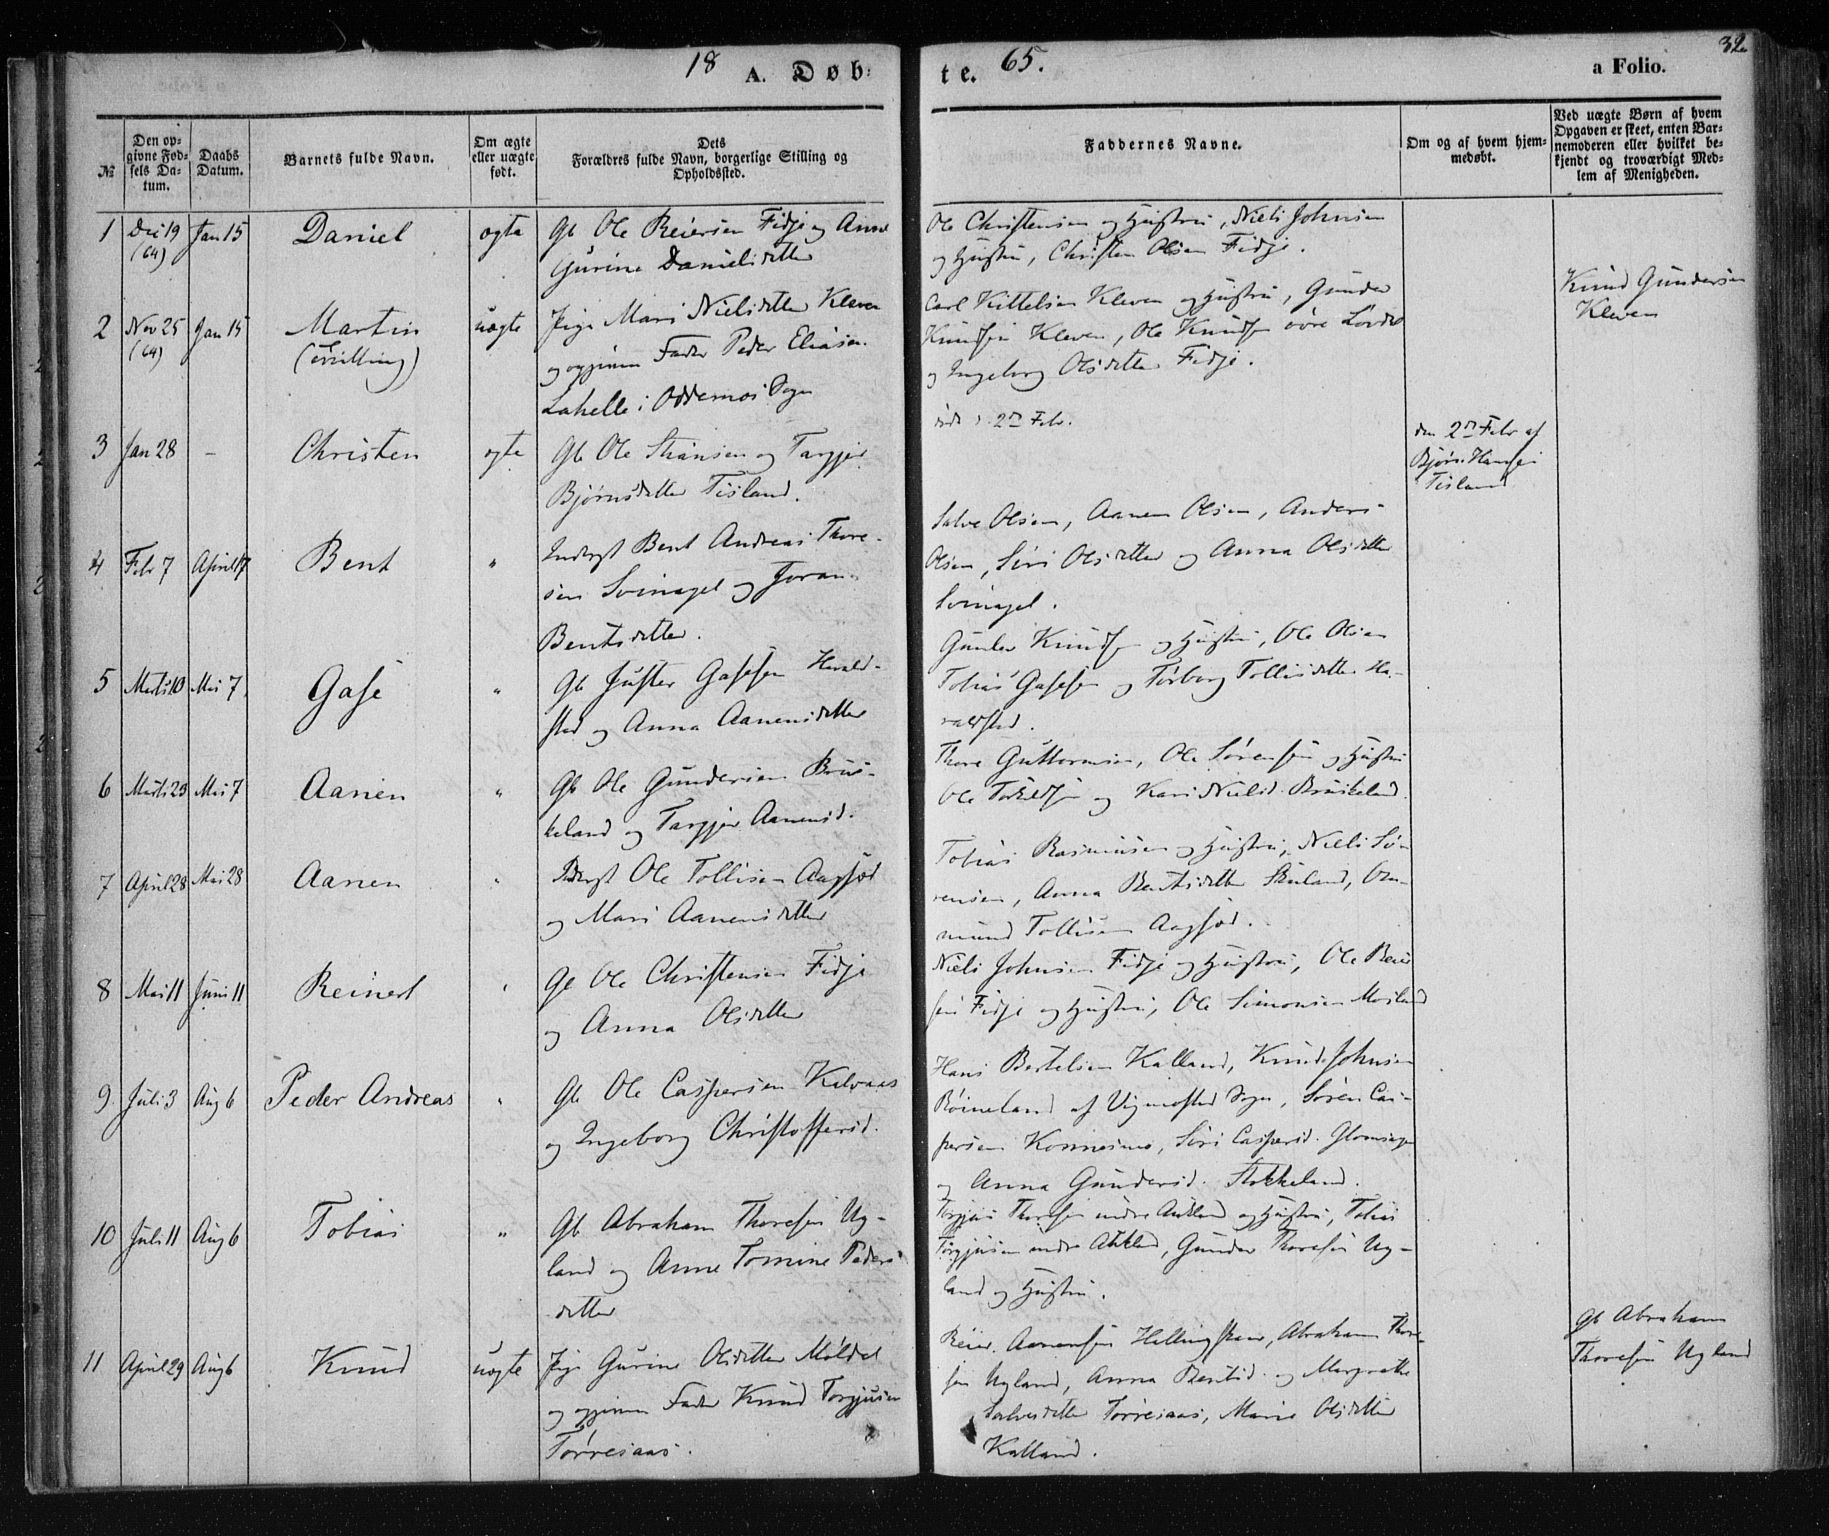 18 A. Døb:
te. 65.
32
a Folio.
№
Den op-
givne Fød-
sels Da-
tum.
Daabs
Datum.
Barnets fulde Navn.
Om ægte
eller uægte
født.
Dets
Forældres fulde Navn, borgerlige Stilling og
Opholdssted.
Faddernes Navne.
Om og af hvem hjem-
medøbt.
Ved uægte Børn af hvem
Opgaven er skeet, enten Bar-
nemoderen eller hvilket be-
kjendt og troværdigt Med-
lem af Menigheden.
1 Dec 19 (64) Jan 15 Daniel ægte
Gb Ole Reiersen Fidje og Anne
Gurine Danielsdatter
Ole Christensen og Hustru, Niels Johnsen
og Hustru, Christen Olsen Fidje.
2 Nov 25 (64) Jan 15 Martin (Trilling) uægte
Pige Mari Nielsdatter Kleven
og opgiven Fader Peder Eliasen
Lahelle i Oddernes Sogn
Carl Kittelsen Kleven og Hustru, Gunder
Knudsen Kleven, Ole Knudsen øvre
og Ingeborg Olsdatter Fidje.
Knud Gundersen
Kleven
3 Jan 28 - Christen ægte
Gb Ole Stiansen og Targjer
Bjørnsdatter Tisland.
død d. 2den Febr.
den 2den Febr af
Bjørn Hansen
Tisland
4 Febr 7 April 17 Bent "
Inderst Bent Andreas Thore-
sen Svinagel og Joran
Bentsdatter.
Salve Olsen, Aanen Olsen, Anders
Olsen, Siri Olsdatter og Anna Olsdatter
Svinagel.
5 Marts 10 Mai 7. Gase "
Gb Juster Gasesen Herald-
sted og Anna Aanensdatter
Gunder Knudsen og Hustru, Ole Olsen
Tobias Gasesen og Torborg Tollisdatter He-
raldsted.
6 Marts 23 Mai 7 Aanen "
Gb Ole Gundersen Brus-
keland og Targjer Aanensd.
Thore Guttormsen, Ole Sørensen og Hustru
Ole Torkildsen og Kari Nielsd. Bruskeland.
7 April 28 Mai 28 Aanen "
Inderst Ole Tollisen Aagsød
og Mari Aanensdatter
Tobias Rasmusen og Hustru, Niels Sø-
rensen, Anna Bentsdatter Skuland, Om-
mund Tollisen Aagsød.
8 Mai 11 Juni 11 Reinert "
Gb Ole Christensen Fidje
og Anna Olsdatter
Niels Johnsen Fidje og Hustru, Ole Reier-
sen Fidje og Hustru, Ole Simonsen Mosland
9. Juli 3 Aug 6 Peder Andreas "
Gb Ole Caspersen Kalvaas
og Ingeborg Christoffersd.
Hans Bertelsen Kalland, Knud Johnsen
Røineland af Vigmostad Sogn, Søren Cas-
persen Konnesmo, Siri Caspersd.
og Anna Gundersd. Stokkeland.
10 Juli 11 Aug 6 Tobias "
Gb Abraham Thoresen Ug-
land og Anne Tomine Peders
datter
Torgjus Thoresen indre og Hustru, Tobias
Torgjusen indre, Gunder Thoresen Ug-
land og Hustru.
11 April 29 Aug 6 Knud uægte
Pige Gurine Olsdatter Møldal
og opgiven Fader Knud Torgjusen
Tørresaas.
Reier Aanensen, Abraham Thore
sen Ugland, Anna Bentsd. og Margrethe
Salvesdatter Tørresaas, Marie Olsdatter
Kalland.
Gb Abraham
Thoresen Ugland